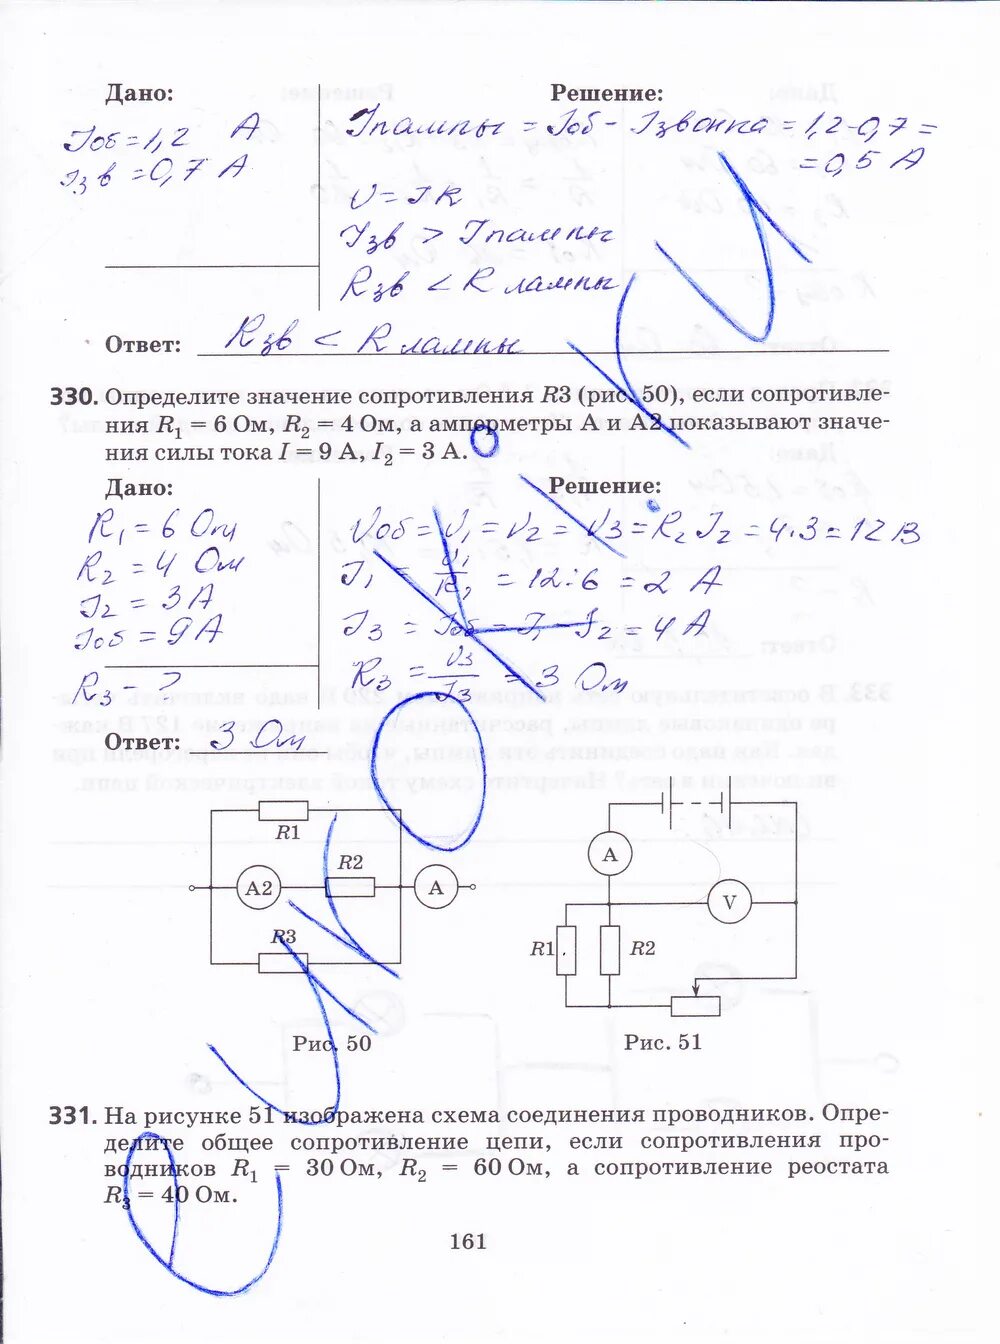 Дано:
Решение:
Iоб = 1,2 А
Iзв = 0,7 А
Iлампы = Iоб - Iзвонка = 1,2 - 0,7 =
= 0,5 А
U = IR
Iзв > Iлампы
Rзв < R лампы
Ответ: Rзв < R лампы
330. Определите значение сопротивления R3 (рис. 50), если сопротивле-
ния R1 = 6 Ом, R2 = 4 Ом, а амперметры А и А2 показывают значе-
ния силы тока I = 9 А, I2 = 3 А.
Дано:
Решение:
R1 = 6 Ом
R2 = 4 Ом
I2 = 3 А
Iоб = 9 А
R3 - ?
Uоб = U1 = U2 = U3 = R2 I2 = 4·3 = 12 В
I1 = U1/R1 = 12:6 = 2 А
I3 = Iоб - I1 - I2 = 4 А
R3 = U3/I3 = 3 Ом
Ответ: 3 Ом
R1
R2
A2
A
R3
Рис. 50
A
V
R1
R2
Рис. 51
331. На рисунке 51 изображена схема соединения проводников. Опре-
делите общее сопротивление цепи, если сопротивления про-
водников R1 = 30 Ом, R2 = 60 Ом, а сопротивление реостата
R3 = 40 Ом.
161